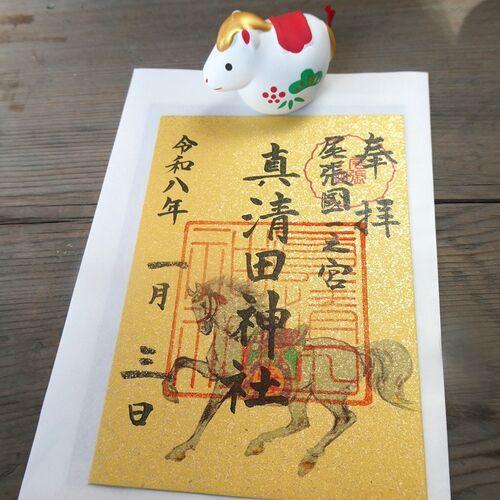 奉拝
尾張國一之宮
真清田神社
令和八年
一月三日